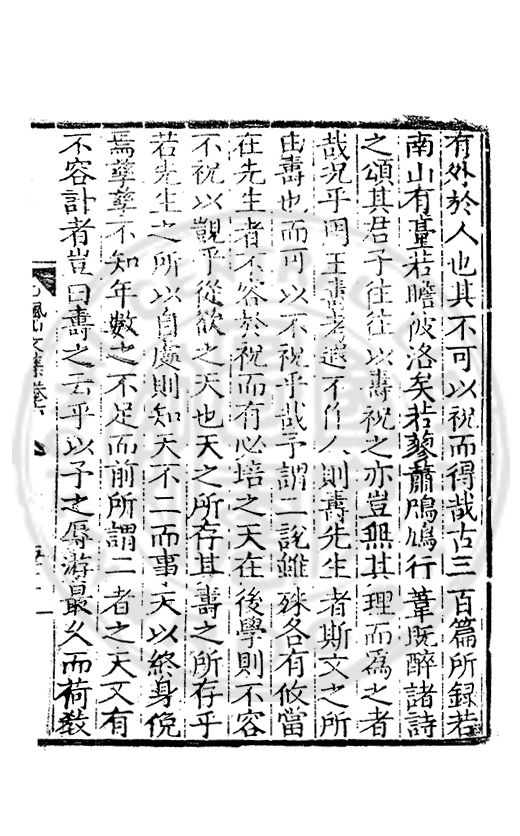 有外於人也其不可以祝而得哉古三百篇所録若
南山有臺若瞻彼洛矣若蓼蕭鳲鳩行葦既醉諸詩
之頌其君子往往以壽祝之亦豈無其理而爲之者
哉况乎周王壽考遐不作人則壽先生者斯文之所
由壽也而可以不祝乎哉予謂二說雖殊各有攸當
在先生者不容於祝而有必培之天在後學則不容
不祝以觀乎從欲之天也天之所存其壽之所存乎
若先生之所以自處則知天不二而事天以終身俛
焉孳孳不知年數之不足而前所謂二者之天又有
不容計者豈曰壽之云乎以予之辱游最久而荷教
文集卷